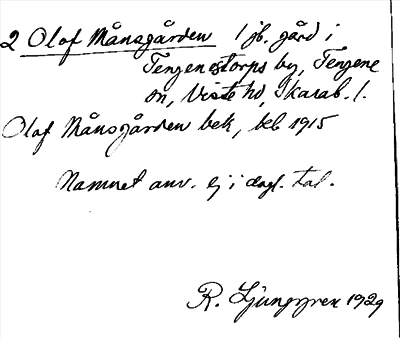 2 Olof Månsgården 1 jb. gård i
Tengenestorps by, Tengene
sn, Viste hd, Skarab. l.
Olof Månsgården bek, beb 1915
Namnet anv. ej i dagl. tal.
R. Ljunggren 1929